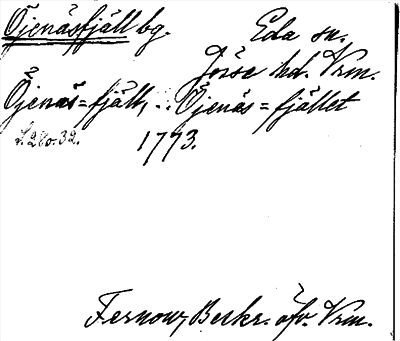 Öjenäsfjäll bg. Eda sn.
Jösse hd. Vrm.
Öjenäs=fjäll, .. Öjenäs=fjället
S. 280. 32. 1773.
Fernow, Beskr. öfv. Vrm.